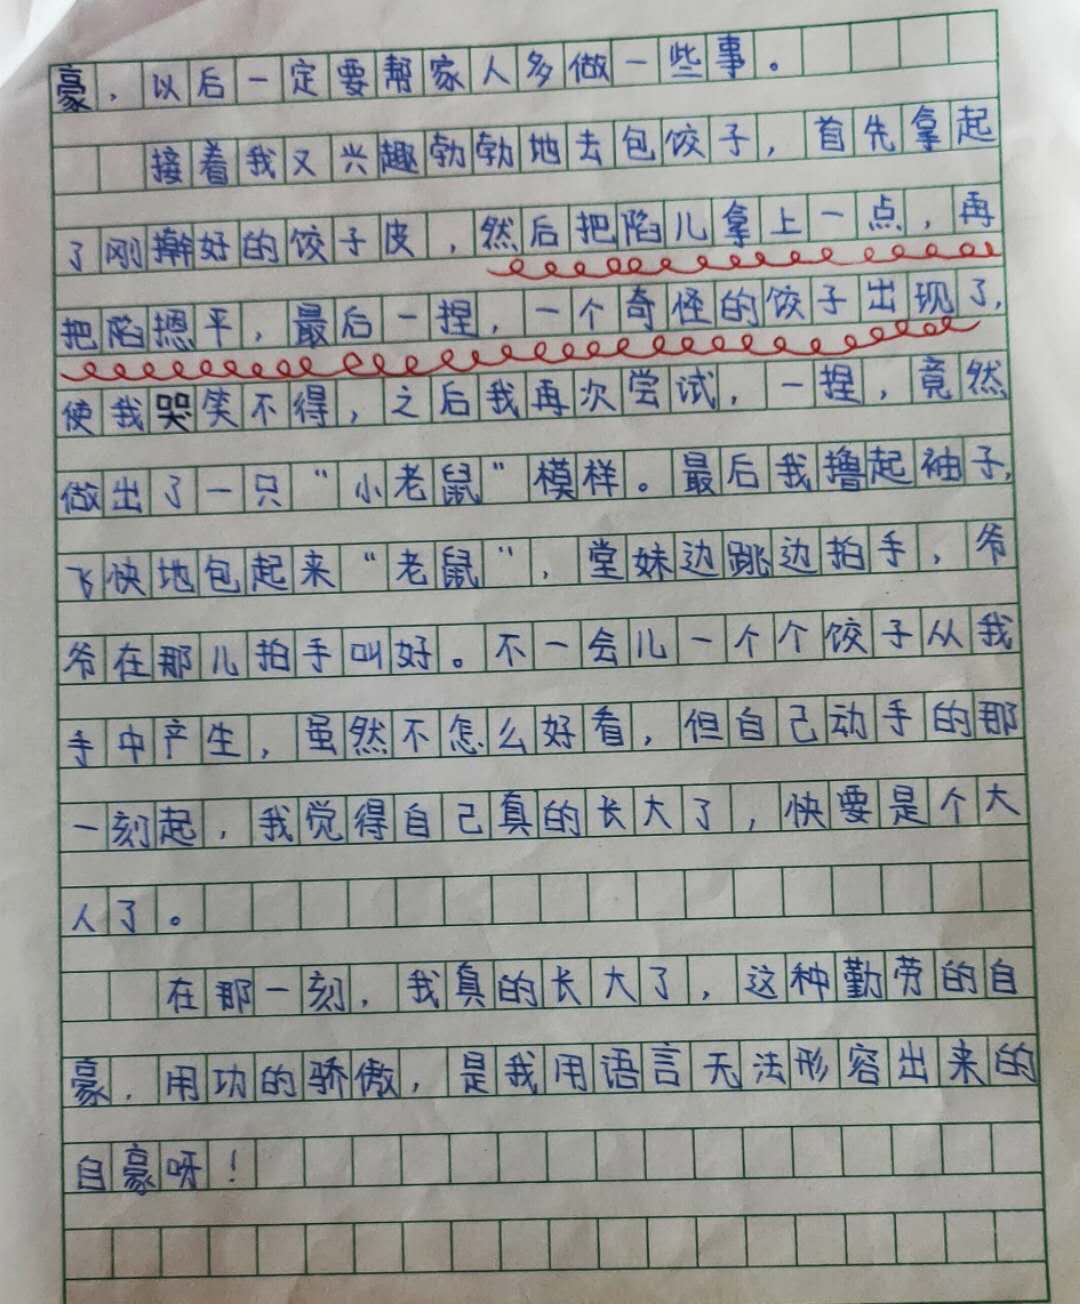 豪，以后一定要帮家人多做一些事。
接着我又兴趣勃勃地去包饺子，首先拿起
了刚擀好的饺子皮，然后把陷儿拿上一点，再
把陷摁平，最后一捏，一个奇怪的饺子出现了，
使我哭笑不得，之后我再次尝试，一捏，竟然
做出了一只“小老鼠”模样。最后我撸起袖子，
飞快地包起来“老鼠”，堂妹边跳边拍手，爷
爷在那儿拍手叫好。不一会儿一个个饺子从我
手中产生，虽然不怎么好看，但自己动手的那
一刻起，我觉得自己真的长大了，快要是个大
人了。
在那一刻，我真的长大了，这种勤劳的自
豪，用功的骄傲，是我用语言无法形容出来的
自豪呀！